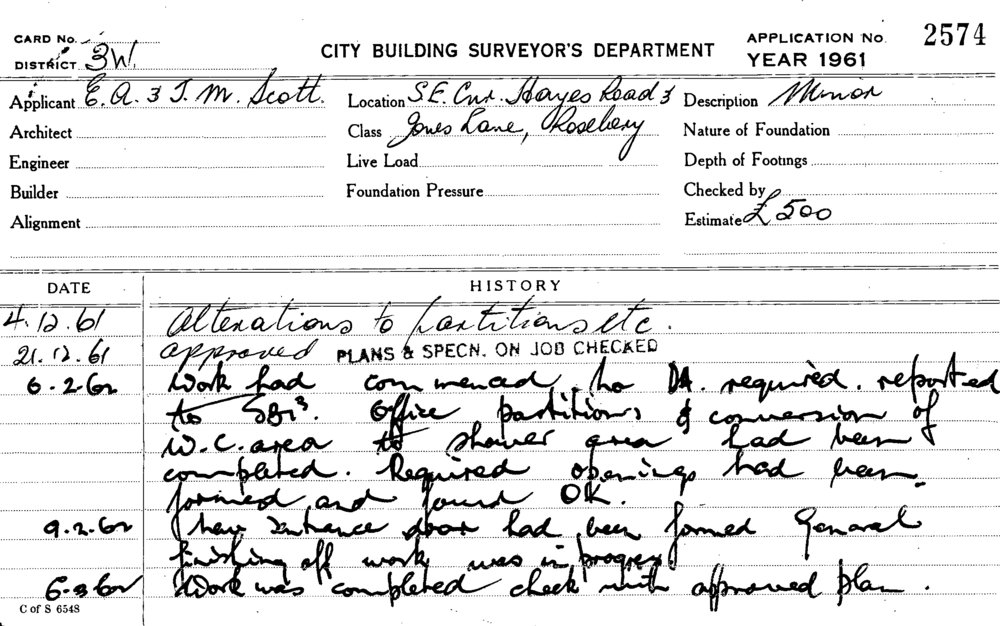 CARD No.
DISTRICT 3W.
CITY BUILDING SURVEYOR'S DEPARTMENT
APPLICATION No. 2574
YEAR 1961
Applicant E. A. & J. M. Scott.
Location S.E. Cnr. Hayes Road &
Description Minor
Architect
Class Jones Lane, Rosebery
Nature of Foundation
Engineer
Live Load
Depth of Footings
Builder
Foundation Pressure
Checked by
Alignment
Estimate £500
DATE HISTORY
4.12.61 Alterations to partitions etc.
21.12.61 approved PLANS & SPECN. ON JOB CHECKED
6-2-62 Work had commenced. no DA. required. reported
to Office partitions & conversion of
W.C. area to shower area had been
completed. Required openings had been
formed and found OK.
9-2-62 New Entrance door had been formed General
finishing off work was in progress
6-3-62 Work was completed check with approved plan.
C of S 6548